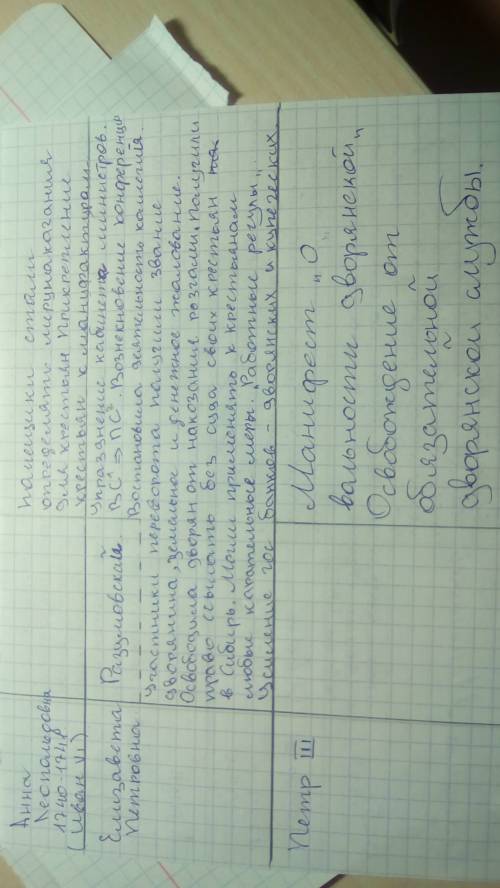 Анна
Леопольдовна
1740-1741
(Иван VI)
помещики стали
определять меру наказания
для крестьян. Прикрепление
крестьян к мануфактурам
Елизавета
Петровна
Разумовский.
Упразднение кабинета министров.
ВС => ПС. Возникновение конференции
Востановила деятельность колегий.
Участники переворота получили звание
дворянина, земельное и денежное жалование.
Освободила дворян от наказания розгами. Получили
право ссылать без суда своих крестьян
в Сибирь. Могли применять к крестьянам
любые карательные меры. "Работные регулы".
Усиление гос банков - дворянских и купеческих
Петр III
Манифест "О
вальности дворянской"
Освобождение от
обязательной
дворянской службы.